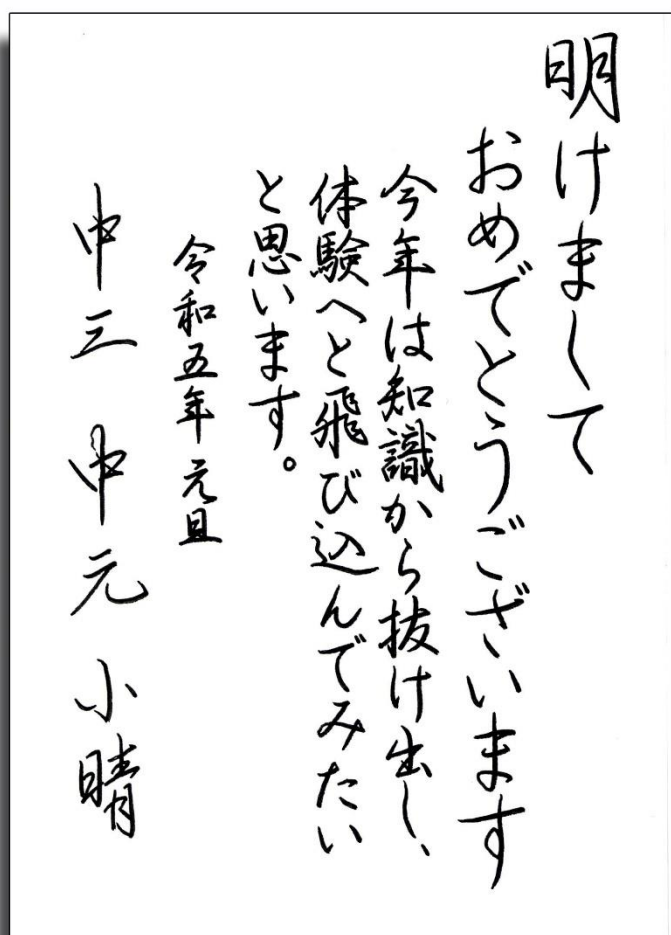 明けまして
おめでとうございます
今年は知識から抜け出し、
体験へと飛び込んでみたい
と思います。
令和五年 元旦
中三 中元 小晴